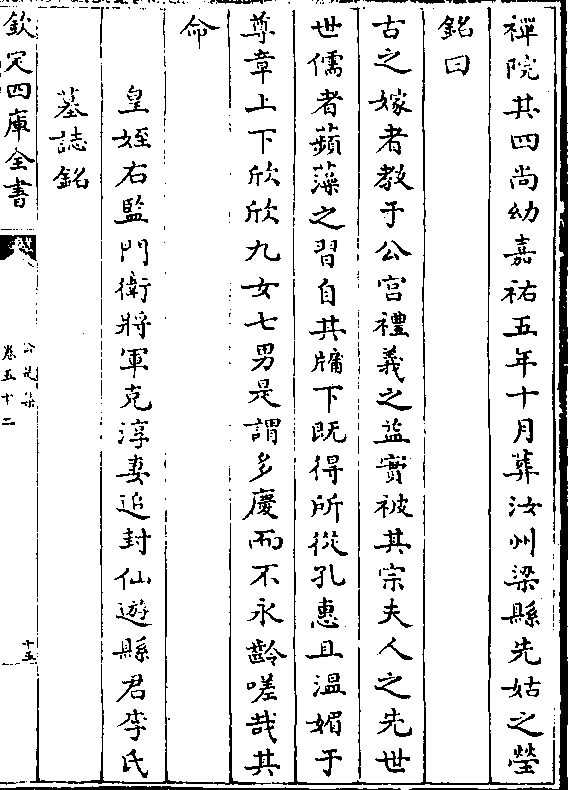 禪院其四尚幼嘉祐五年十月葬汝州梁縣先姑之塋
銘曰
古之嫁者教于公宫禮義之益實被其宗夫人之先世
世儒者蘋藻之習自其牖下既得所從孔惠且溫媚于
尊章上下欣欣九女七男是謂多慶而不永齡嗟哉其
命
皇姪右監門衛將軍克淳妻追封仙遊縣君李氏
墓誌銘
欽定四庫全書
公是集
卷五十二
十五